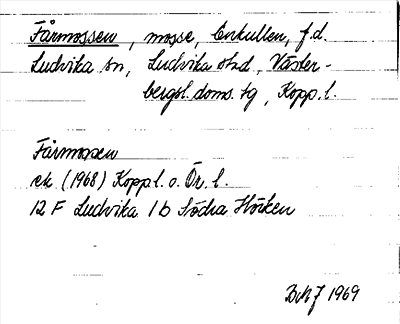 Fårmossen, mosse, Enkullen, f.d.
Ludvika sn, Ludvika stad, Väster-
bergsl. doms. tg, Kopp. l.
Fårmossen
ek (1968) Kopp l. o. Ör. l.
12 F Ludvika 1 b Södra Hörken
1969